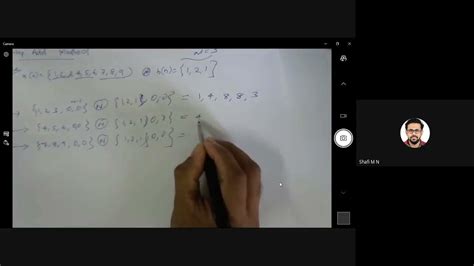 Add Method
x(n) = {1,2,3,4,5,6,7,8,9} h(n) = {1,2,1}
{1,2,3,0,0} Ⓝ {1,2,1,0,0} = 1, 4, 8, 8, 3
→ {4,5,6,0,0} Ⓝ {1,2,1,0,0} =
→ {7,8,9,0,0} Ⓝ {1,2,1,0,0} =
Shafi M N